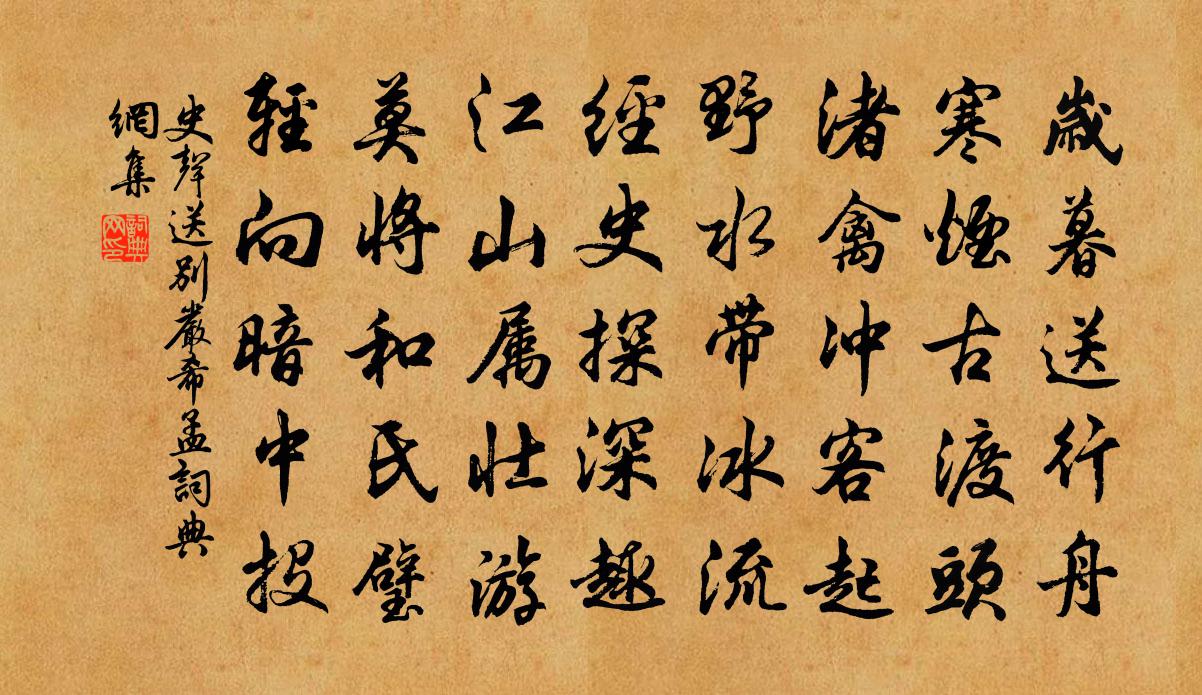 歲暮送行舟
寒煙古渡頭
渚禽冲客起
野水带冰流
經史探深趣
江山属壮游
莫將和氏璧
輕向暗中投
史聲送別嚴希孟詞典
網集
詞典
网印